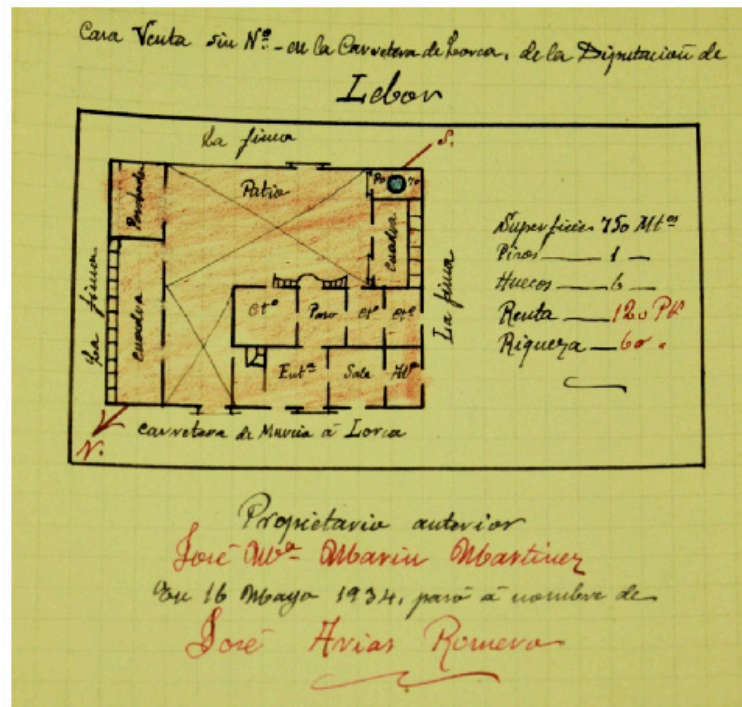 Casa Venta sin Nº - en la Carretera de Lorca, de la Diputación de
Lebor
La finca
S.
Patio
Po
zo
Cuadra
La finca
La finca
Cuadra
Ctº
Paso
Ctº
Ctº
Entª
Sala
Abª
Carretera de Murcia á Lorca
N.
Superficies 750 Mtºs
Pisos — 1 —
Huecos — 6 —
Renta — 120 Pts
Riqueza — 60 "
Propietario anterior
José Mª Marin Martinez
En 16 Mayo 1934, pasó á nombre de
José Arias Romero